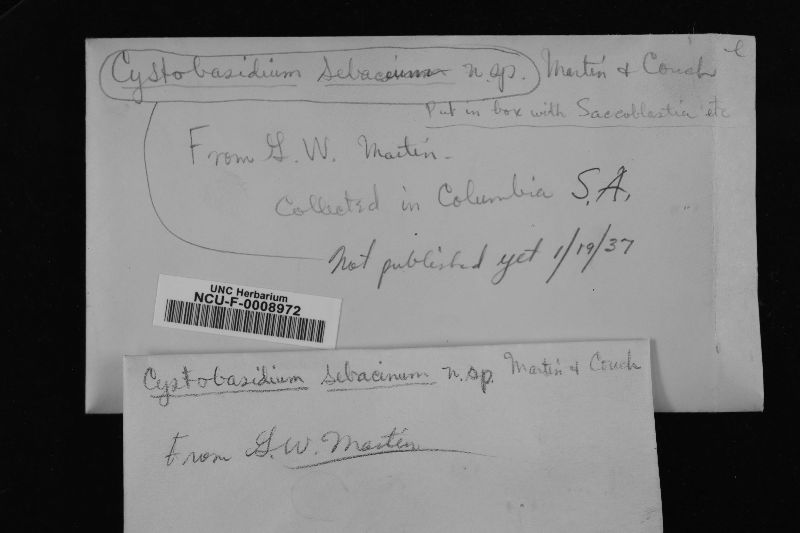 Cystobasidium sebacinum n.sp. Martin & Couch
Put in box with Saccoblastia etc
From G. W. Martin.
Collected in Columbia S.A.
Not published yet 1/19/37
UNC Herbarium
NCU-F-0008972
Cystobasidium sebacinum n.sp. Martin & Couch
From G.W. Martin